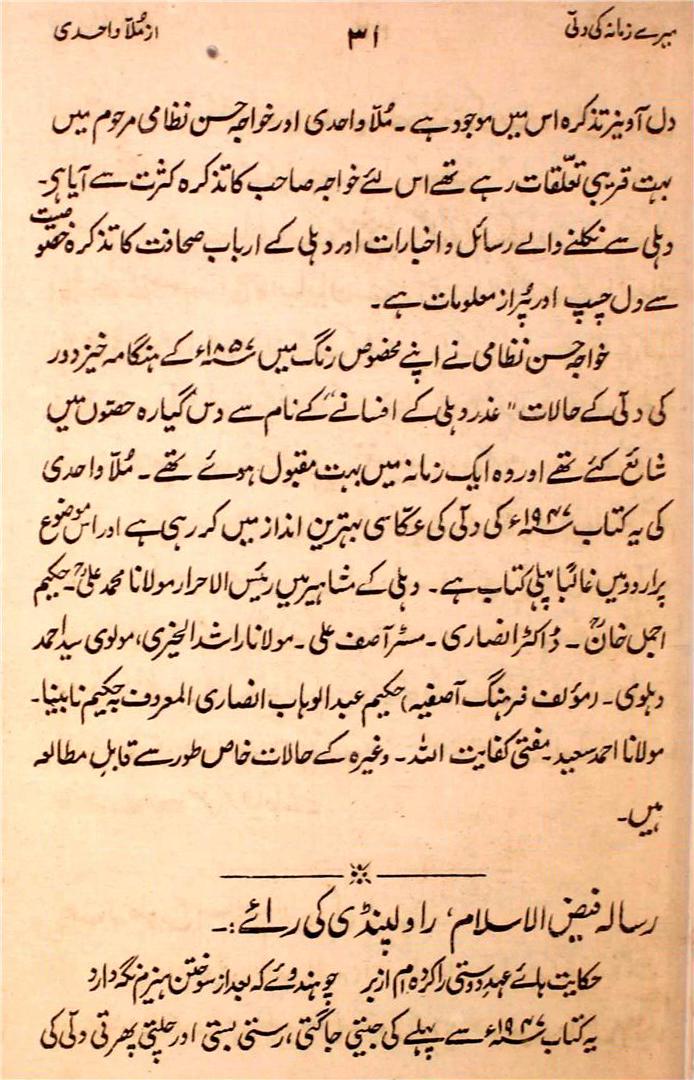 میرے زمانہ کی دلّی ۳۱ از مُلّا واحدی
دل آویز تذکرہ اس میں موجود ہے۔ مُلّا واحدی اور خواجہ حسن نظامی مرحوم میں
بہت قریبی تعلّقات رہے تھے اس لئے خواجہ صاحب کا تذکرہ کثرت سے آیا ہی۔
دہلی سے نکلنے والے رسائل و اخبارات اور دہلی کے ارباب صحافت کا تذکرہ خصوصیت
سے دل چسپ اور پُر از معلومات ہے۔
خواجہ حسن نظامی نے اپنے مخصوص رنگ میں ۱۸۵۷ء کے ہنگامہ خیز دور
کی دلّی کے حالات "غدر دہلی کے افسانے" کے نام سے دس گیارہ حصّوں میں
شائع کئے تھے اور وہ ایک زمانہ میں بہت مقبول ہوئے تھے۔ مُلّا واحدی
کی یہ کتاب ۱۹۴۷ء کی دلّی کی عکّاسی بہترین انداز میں کر رہی ہے اور اس موضوع
پر اردو میں غالباً پہلی کتاب ہے۔ دہلی کے مشاہیر میں رئیس الاحرار مولانا محمد علیؒ۔ حکیم
اجمل خانؒ۔ ڈاکٹر انصاری۔ مسٹر آصف علی۔ مولانا راشد الخیری، مولوی سید احمد
دہلوی۔ (مؤلف فرہنگ آصفیہ) حکیم عبدالوہاب انصاری المعروف بہ حکیم نابینا۔
مولانا احمد سعید۔ مفتی کفایت اللہ۔ وغیرہ کے حالات خاص طور سے قابلِ مطالعہ
ہیں۔
رسالہ فیض الاسلام، راولپنڈی کی رائے:۔
حکایت ہائے عہدِ دوستی را کردہ ام از بر چو ہندوئے کہ بعد از سوختن ہیزم نگہ دارد
یہ کتاب ۱۹۴۷ء سے پہلے کی جیتی جاگتی، رستی بستی اور چلتی پھرتی دلّی کی